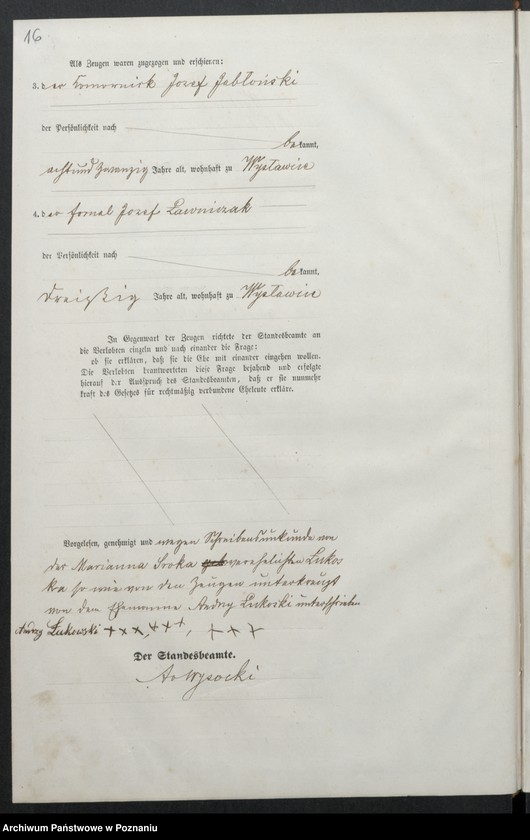 16
Als Zeugen waren zugezogen und erschienen:
3. der Komornick Jozef Jabłoński
der Persönlichkeit nach
bekannt,
achtundzwanzig Jahre alt, wohnhaft zu Wysławice
4. der fornal Jozef Ławniczak
der Persönlichkeit nach
bekannt,
dreißig Jahre alt, wohnhaft zu Wysławice
In Gegenwart der Zeugen richtete der Standesbeamte an
die Verlobten einzeln und nach einander die Frage:
ob sie erklären, daß sie die Ehe mit einander eingehen wollen.
Die Verlobten beantworteten diese Frage bejahend und erfolgte
hierauf der Ausspruch des Standesbeamten, daß er sie nunmehr
kraft des Gesetzes für rechtmäßig verbundene Eheleute erkläre.
Vorgelesen, genehmigt und wegen Schreibensunkunde von
der Marianna Sroka verehelichten Łukos
ka so wie von den Zeugen unterkreuzt
von dem Ehemanne Andrzy unterschrieben
Andrzy Łukowski +++, +++, +++
Der Standesbeamte.
Wysocki
Archiwum Państwowe w Poznaniu